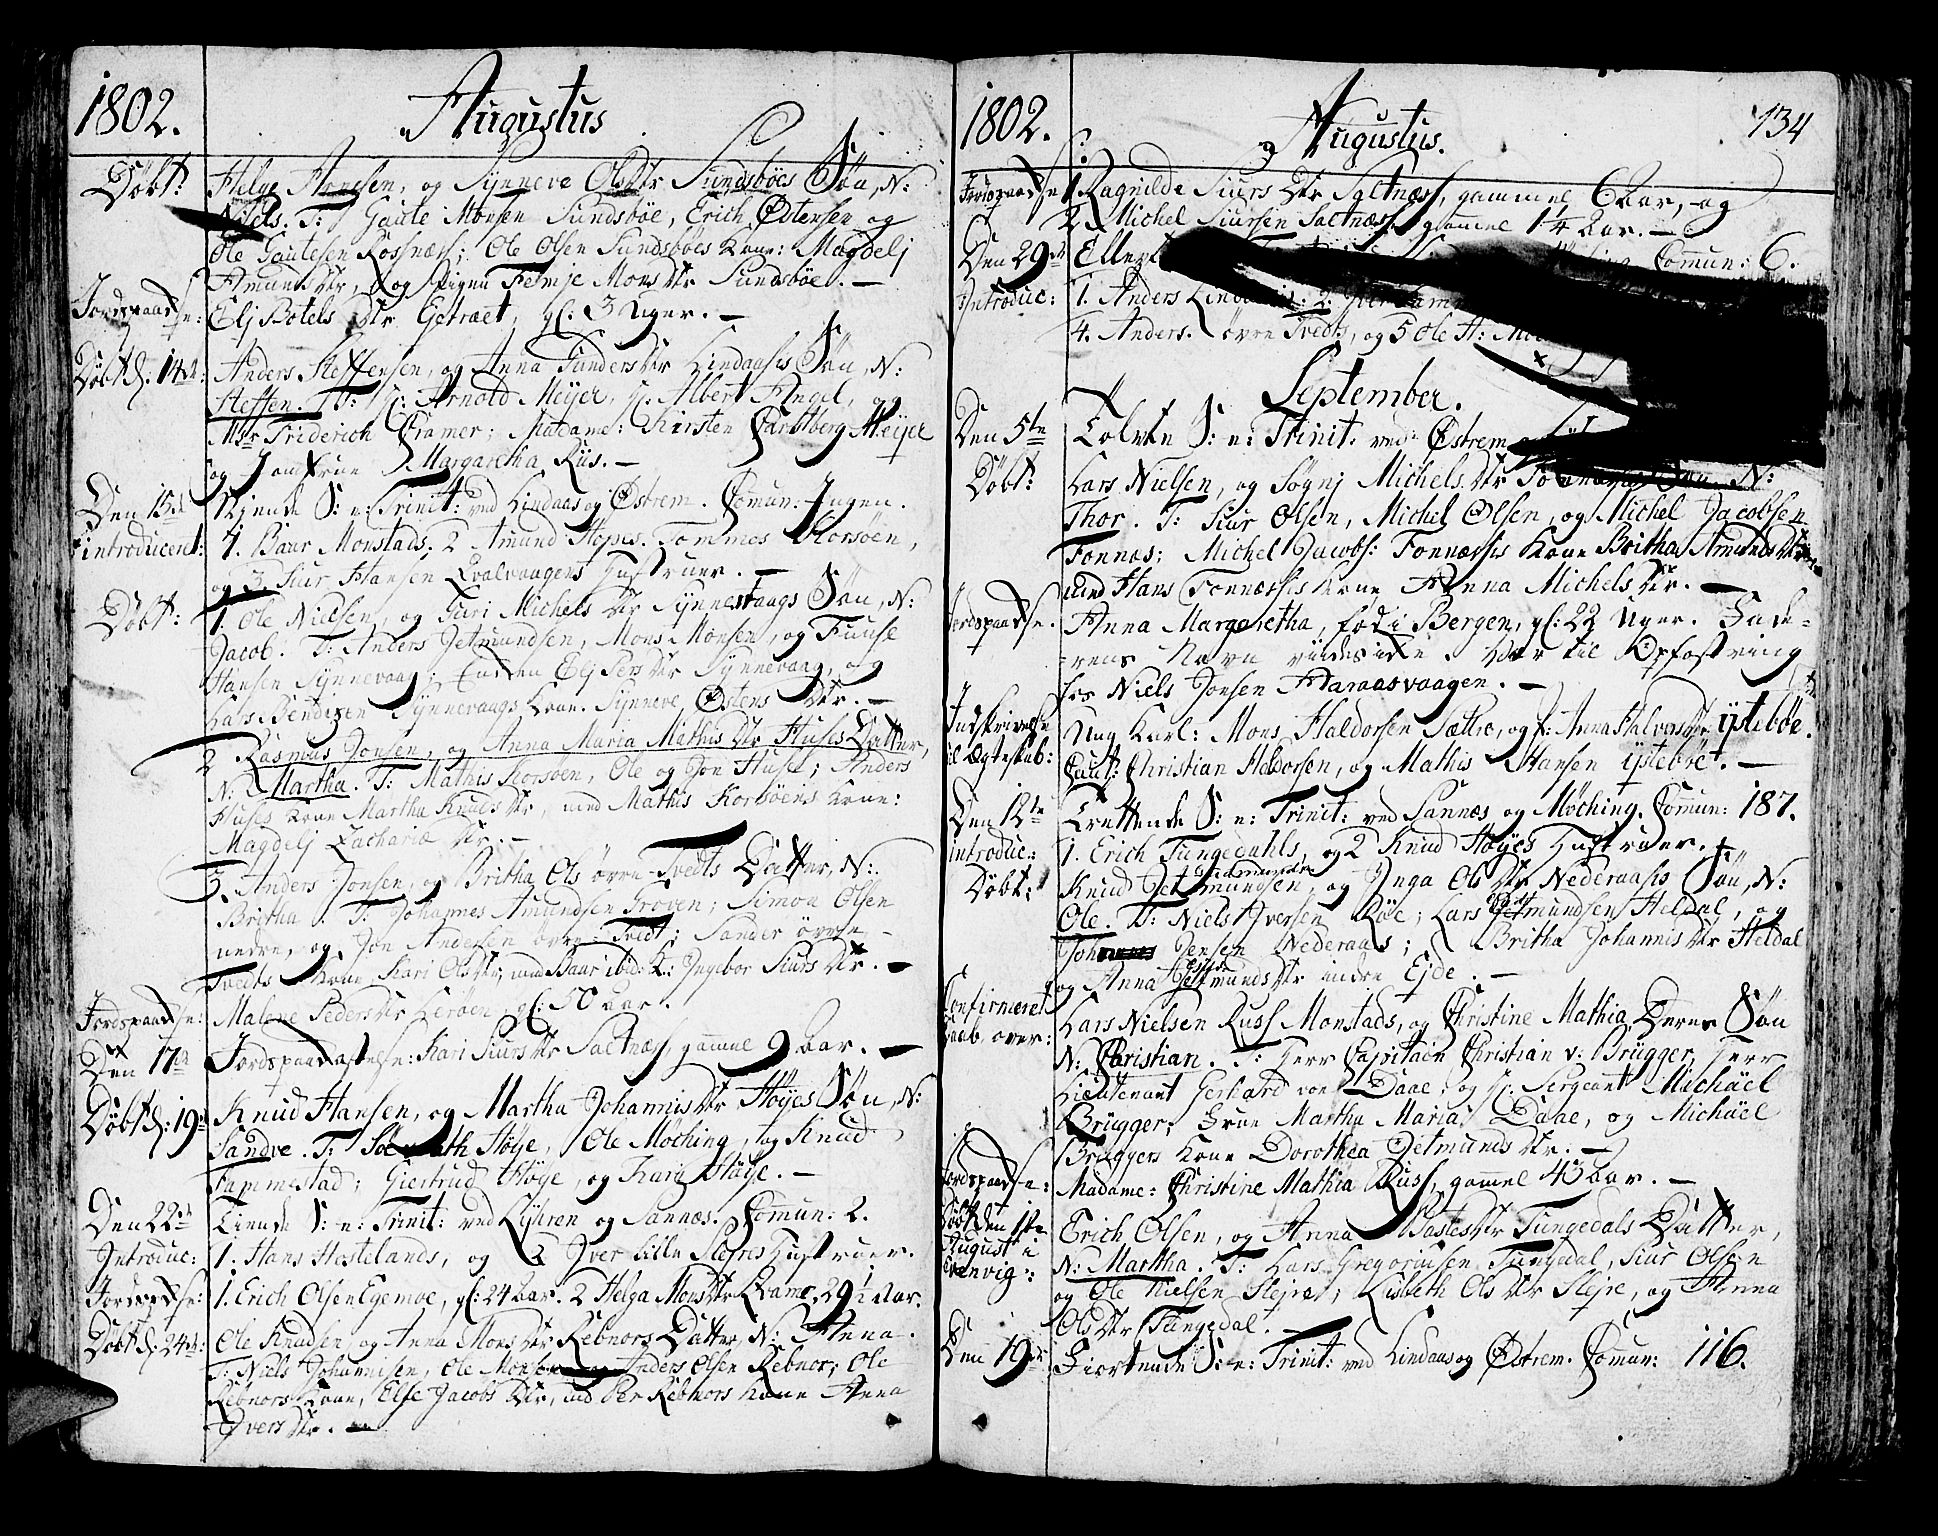 1802. Augustus
Døbt: Helge Hansen, og Synneve Olsdtr Sundsbøes Søn, N:
Niels. T: Gaute Monsen Sundsbøe, Erich Østensen og
Ole Gautesen Rossnæss; Ole Olsen Sundsbøes Kone: Magdelj
Amunds dtr, og Pigen Femje Mons dtr Sundsbøe. —
Jordspaadse: Elj Botels dtr Gjetræet, gl: 3 Uger. —
Døbt d. 14de: Anders Steffensen, og Anna Sanders dtr Lindaases Søn, N:
Steffen. T: Hr: Arnold Meyer, Hr: Albert Angel, og
Msr Friderich Cramer; Madame: Kirsten Garstberg Meyer
og Jomfrue Margaretha Riis. —
Den 15de Niende S: e: Trinit: ved Lindaas og Østrem. Comun: Ingen.
introduceret: 1. Baar Monstads. 2 Amund Hopes. Tommes Korsøen,
og 3 Siur Hansen Qvalvaagens Hustruer. —
Døbt: 1. Ole Nielsen, og Guri Michels dtr Synnevaags Søn, N:
Jacob. T: Anders Jetmundsen, Mons Monsen, og Fuuse
Hansen Synnevaag; Enken Elj Pers dtr Synnevaag, og
Lars Bendixen Synnevaags Kone. Synneve Østens dtr. —
2 Rasmus Jonsen, og Anna Maria Mathis dtr Huses Datter,
N: Martha. T: Mathis Korsøen, Ole og Jon Huse; Anders
Huses Kone Martha Knuds dtr, und Mathis Korsøens Kone:
Magdelj Zachariæ dtr. —
3. Anders Jonsen, og Britha Ols øvre Tvedts Datter, N:
Britha. T: Johannes Amundsen Proven; Simon Olsen
nedre, og Jon Andersen øvre Tvedt; Sander øvre
Tvedts Kone Kari Ols dtr, und Baar ibid: K: Ingebor Siurs dtr. —
Jordspaadse: Malene Peders dtr Kerøen, gl: 50 aar.
Den 17de Jordspaadkastelse: Kari Siurs dtr Sætnæss, gammel 9 Aar. —
Døbt d: 19de Knud Hansen, og Martha Johannis dtr Høyes Søn, N:
Sandve. T: Høye, Ole Möching, og Knud
Fammestad; Giertrud Høye, og Kari Høye. —
Den 22de Tiende S: e: Trinit: ved Lyhren og Sannæs. Comun: 2.
Introduc: 1. Hans Hostelands, og 2 Iver lille Slejres Hustruer.
Jordspdse: 1. Erich Olsen Egemoe, gl: 24 aar. 2 Helga Mons dtr Qvame, 29½ Aar.
Døbt d: 24de: Ole Knudsen, og Anna Mons dtr Rebnors Datter, N: Anna.
T: Niels Johannisen, Ole Monsen og Anders Olsen Rebnor; Ole
Rebnors Kone, Else Jacobs dtr, und Per Rebnors Kone Anna
Ivers dtr. —
1802. Augustus. 134
Jordspaadse 1. Ragnilde Siurs dtr Sætnæss, gammel 6 Aar, og
2 Michel Siursen Sætnæss gammel 14 Aar. —
Den 29de Ellevte Comun: 6.
Introduc: 1. Anders Lindaas: 2.
4. Anders øvre Tvedts, og 5 Ole A:
September.
Den 5te Tolvte S: e: Trinit: ved Østrem
Døbt: Lars Nielsen, og Søgni Michels dtr Søn. N:
Thor. T: Siur Olsen, Michel Olsen, og Michel Jacobsen
Fonnæs; Michel Jacobs: Fonnæsses Kone Britha Amunds dtr
und Hans Fonnæsses Kone Anna Michels dtr. —
Jordspaadse. Anna Margaretha, fød i Bergen, gl: 22 Uger. Fade-
rens Navn vides ikke. var til Opfostring
hos Niels Jonsen Haraasvaagen. —
Indskrivelse til Ægteskab: Ung Karl: Mons Haldorsen Sættre, og P: Anna Halvorsdtr ijstebøe.
Caut: Christian Haldorsen, og Mathis Hansen ijstebøe. —
Den 12te Trettende S: e: Trinit: ved Sannæs og Möching. Comun: 187.
introduc: 1. Erich Tungedahls, og 2 Knud Høyes Hustruer. —
Døbt: Knud Jetmundsen, og Inga Ols dtr Nederaases Søn, N:
Ole. T: Niels Iversen Röe; Lars Jetmundsen Heldal, og
Jensen Nederaas; Britha Johannis dtr Heldal
og Anna Jetmunds dtr indre Ejde. —
Confirmeret Daab over: Lars Nielsen Russ Monstads, og Christine Mathia Deres Søn
N: Christian. T: Herr Capitain Christian v: Brügger, Herr
Lieutenant Gerhard von Daae, og Hr: Sergeant Michäel
Brügger; Frue Martha Maria Daae, og Michäel
Brüggers Kone Dorothea Jetmunds dtr. —
Jordspaadse: Madame: Christine Mathia Russ, gammel 43 aar. —
Døbt den 1te August i Evenvig: Erich Olsen, og Anna dtr Tungedals Datter,
N: Martha. T: Lars Gregoriusen Tungedal, Siur Olsen
og Ole Nielsen Slejre; Lisbeth Ols dtr Slejre, og Anna
Ols dtr Tungedal. —
Den 19de Fiortende S: e: Trinit: ved Lindaas og Østrem. Comun: 116.